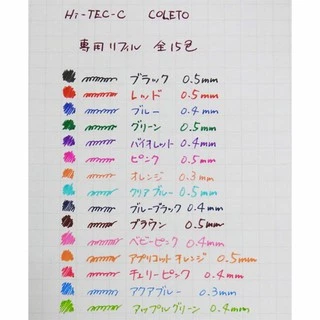 Hi-TEC-C COLETO
専用リフィル 全15色
ブラック 0.5mm
レッド 0.5mm
ブルー 0.4mm
グリーン 0.5mm
バイオレット 0.4mm
ピンク 0.5mm
オレンジ 0.3mm
クリアブルー 0.5mm
ブルーブラック 0.4mm
ブラウン 0.5mm
ベビーピンク 0.4mm
アプリコットオレンジ 0.5mm
チェリーピンク 0.4mm
アクアブルー 0.3mm
アップルグリーン 0.4mm